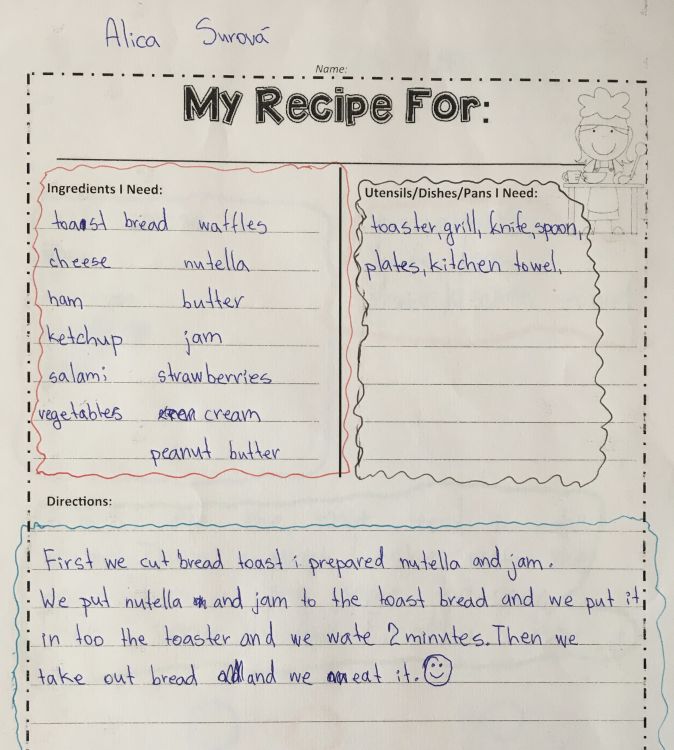 Alica Surová
Name:
My Recipe For:
Ingredients I Need:
toast bread waffles
cheese nutella
ham butter
ketchup jam
salami strawberries
vegetables cream
peanut butter
Utensils/Dishes/Pans I Need:
toaster, grill, knife, spoon,
plates, kitchen towel.
Directions:
First we cut bread toast i prepared nutella and jam.
We put nutella and jam to the toast bread and we put it
in too the toaster and we wate 2 minutes. Then we
take out bread and we eat it.